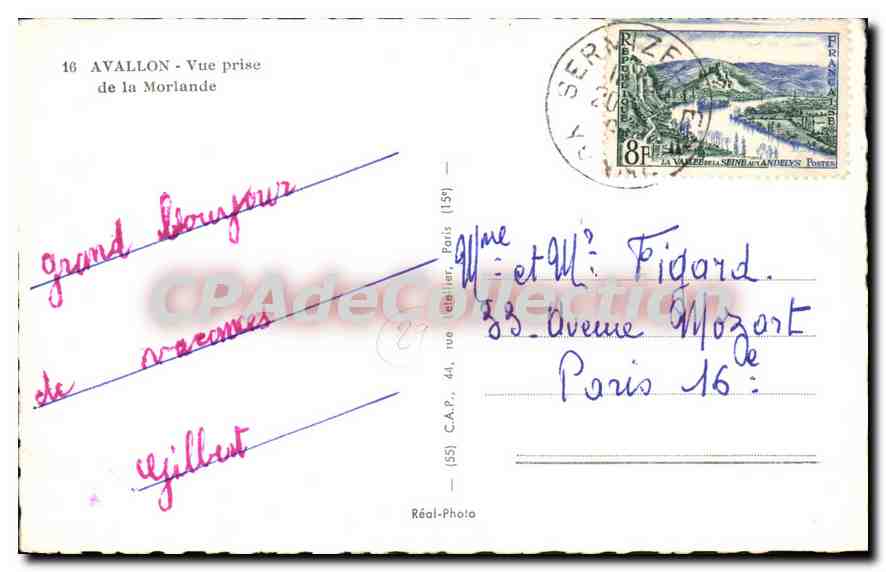 16 AVALLON - Vue prise
de la Morlande
grand bonjour
de vacances
Gilbert
(55) C.A.P., 44, rue Letellier, Paris (15e)
Réal-Photo
RÉPUBLIQUE
FRANÇAISE
8F
LA VALLÉE DE LA SEINE AUX ANDELYS POSTES
SERMIZE
20
Mme et Mr Figard.
33 - Avenue Mozart
Paris 16e
CPAdeCollection
29